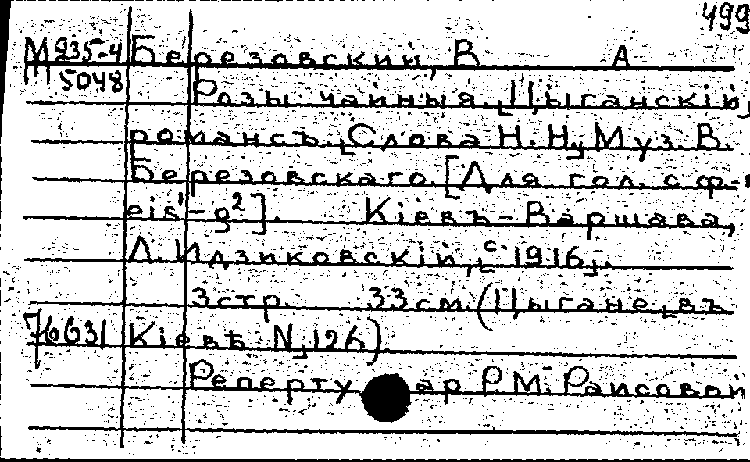 499
М 235-4 Березовский, В А
П 5048
Розы чайныя. [Цыганскій]
романсъ. [Слова Н. Н.] Муз. В.
Березовскаго. [Для гол. с ф-п
eis¹-g²]. Кіевъ-Варшава,
Л. Идзиковскій, [с. 1916].
3 стр. 33 см. (Цыгане въ
76631 Кіевѣ. N 126)
Репертуар Р. М. Раисовой